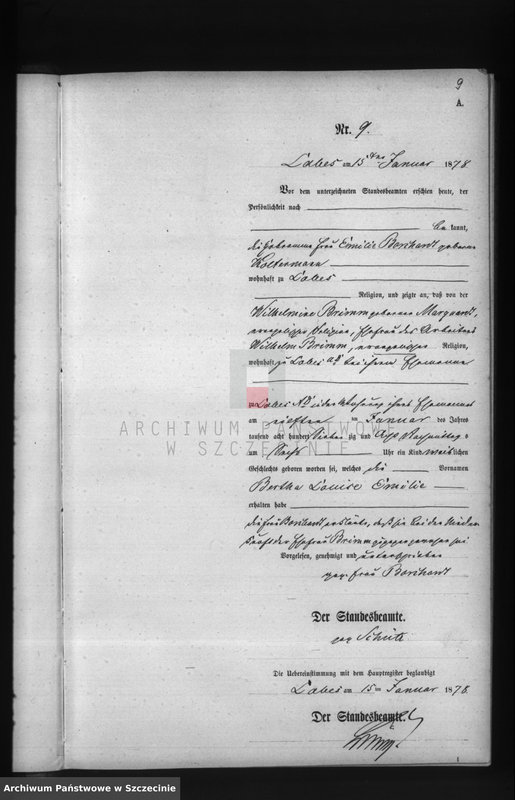 9
A.
Nr. 9.
Labes am 15ten Januar 1878
Vor dem unterzeichneten Standesbeamten erschien heute, der
Persönlichkeit nach
be kannt,
die Hebeamme Frau Emilie Borchardt geborene
Koltermann
wohnhaft zu Labes
Religion, und zeigte an, daß von der
Wilhelmine Brimm geborenen Marquardt,
evangelischer Religion, Ehefrau des Arbeiters
Wilhelm Brimm, evangelischer Religion,
wohnhaft zu Labes bei ihrem Ehemanne
zu Labes in der Wohnung ihres Ehemannes
am elften im Januar des Jahres
tausend acht hundert siebenzig und Acht Nachmittags
um Sechs Uhr ein Kind weiblichen
Geschlechts geboren worden sei, welches die Vornamen
Bertha Louise Emilie
erhalten habe
die Frau Borchardt erklärte, daß sie bei der Nieder-
kunft der Ehefrau Brimm zugegen gewesen sei
Vorgelesen, genehmigt und unterschrieben
gez. Frau Borchardt
Der Standesbeamte.
gez Schütz
Die Uebereinstimmung mit dem Hauptregister beglaubigt
Labes am 15ten Januar 1878.
Der Standesbeamte.
ARCHIWUM PAŃSTWOWE
W SZCZECINIE
Archiwum Państwowe w Szczecinie